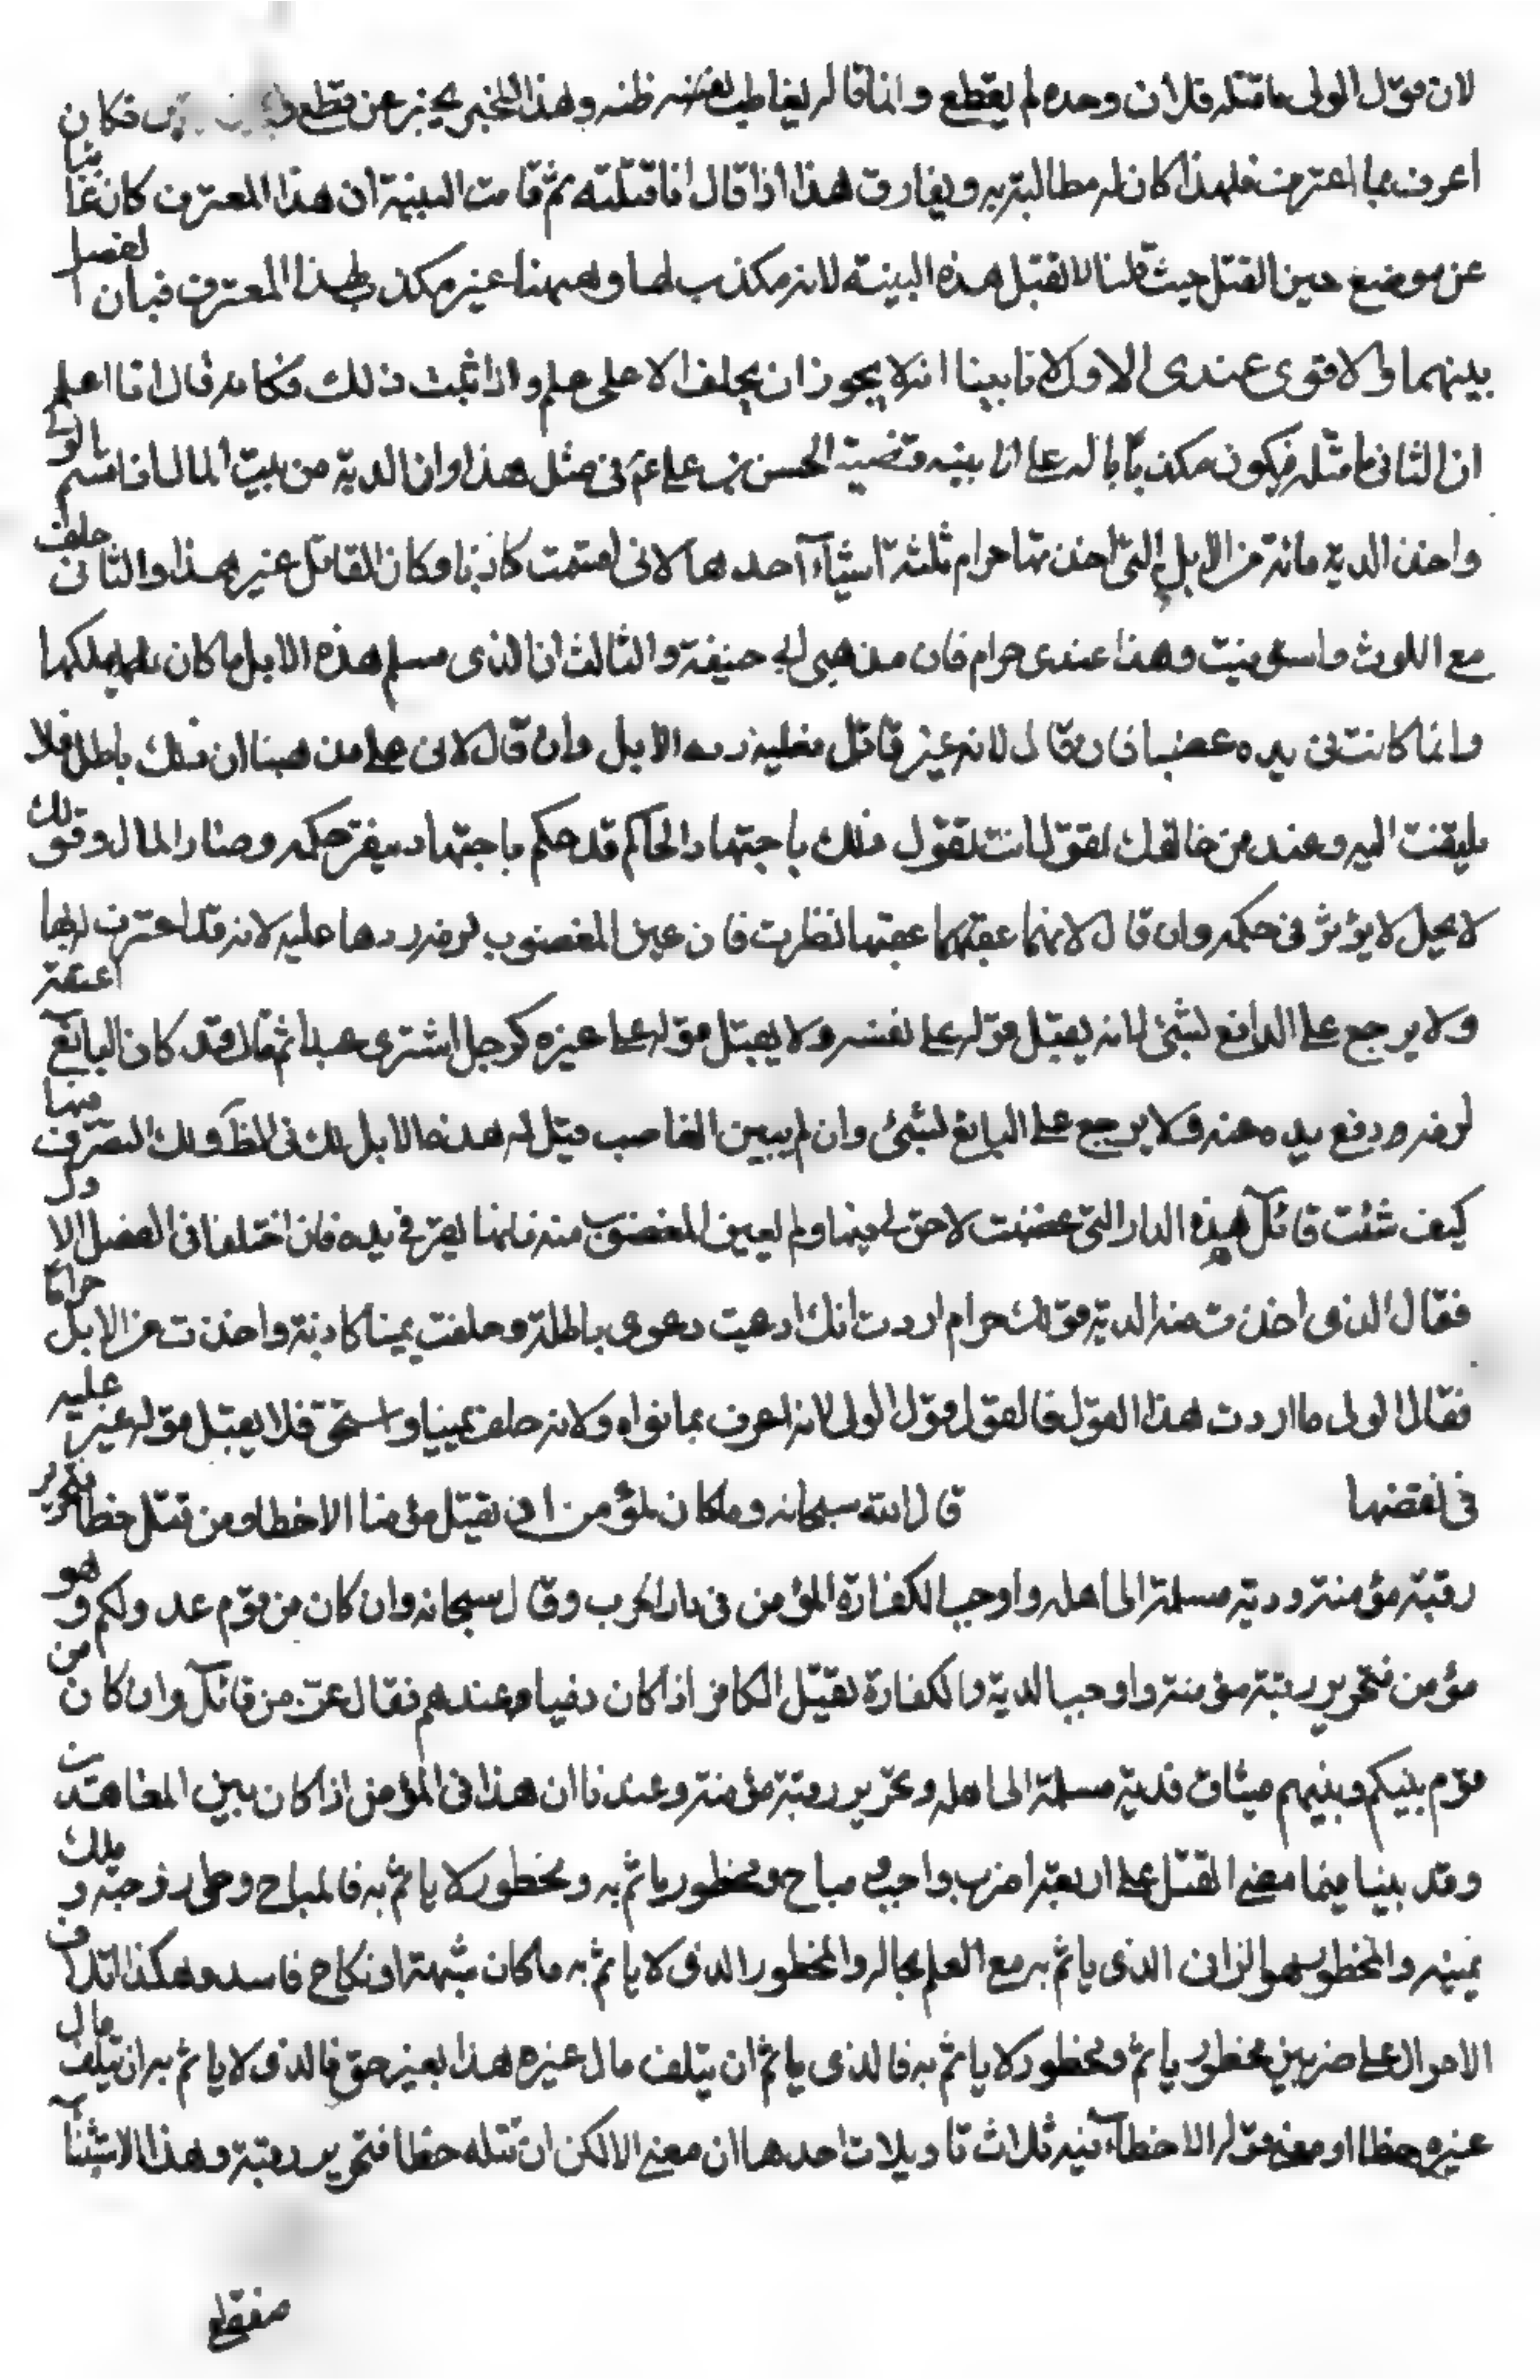 لان قول الولى ما قتله فلان وحده لم يقطع وانما قاله بغالب نفسه ظنه وهذا المخبر يخبر عن قطع و فكان
اعرف بما اعترف فلهذا كان له مطالبته به ويفارق هذا اذا قال انا قتلته ثم قامت البينة ان هذا المعترف كان غائبا
عن موضع حين القتل حيث قلنا لا تقبل هذه البينة لانه مكذب لها وههنا غير مكذب لهذا المعترف فبان الفصل
بينهما والاقوى عندى الاول لانا بينا انه لا يجوز ان يحلف الا على علم واذا ثبت ذلك فكانه قال انا اعلم
ان الثانى ما قتله فيكون مكذبا له على انا بينه قضية الحسن بن على ع في مثل هذا وان الدية من بيت المال اذا قسم الولى
واخذ الدية مائة من الابل التى اخذتها حرام ثلثة اشياء احدها لانى اقسمت كاذبا وكان القاتل غير هذا والثانى حلفت
مع اللوث واستوفيت وهذا عندى حرام فان مذهبى ابى حنيفة والثالث ان الذى مسلم هذه الابل ما كان يملكها
وانما كانت فى يده غصبا فان قال لانه غير قاتل فعليه رد الابل وان قال لانى على مذهبنا ان ذلك باطل فلا
يلتفت اليه وعند من خالفك يقول انت تقول ذلك باجتهاد الحاكم قد حكم باجتهاده يقر حكمه وصار المال وقولك
لا يحل لا يؤثر فى حكمه وان قال لانهما غصبها نظرت فان عين المغصوب لزمه ردها عليه لانه قد اعترف له بها
ولا يرجع على الدافع بشئ لانه يقبل قوله على نفسه ولا يقبل قوله على غيره كرجل اشترى عبدا ثم قال قد كان البائع اعتقه
لزمه ورفع يده عنه ولا يرجع على البايع بشئ وان لم يبين الغاصب قيل له هذه الابل لك فى الظ ولك التصرف فيها
كيف شئت قائل هذه الدار التى غصبت لا حق لى فيها ولم يعين المغصوب منه فانها يقر فى يده فان اختلفا فى الفصل الاول
فقال الذى اخذت منه الدية قولك حرام اردت انك ادعيت دعوى باطلة وحلفت يمينا كاذبة واخذت من الابل حراما
فقال الولى ما اردت هذا القول فالقول قول الولى لانه اعرف بما نواه ولانه حلف يمينا واستحق فلا يقبل قول غيره عليه
فى نقضها قال الله سبحانه وما كان لمؤمن ان يقتل مؤمنا الا خطا ومن قتل خطا فتحرير
رقبة مؤمنة ودية مسلمة الى اهله واوجب الكفارة المؤمن فى دار الحرب وقال سبحانه وان كان من قوم عدو لكم وهو
مؤمن فتحرير رقبة مؤمنة واوجب الدية والكفارة بقتل الكافر اذا كان ذميا وعندهم فقال عز من قائل وان كان من
قوم بينكم وبينهم ميثاق فدية مسلمة الى اهله وتحرير رقبة مؤمنة وعندنا ان هذا فى المؤمن اذا كان بين المعاهدين
وقد بينا فيما مضى القتل على اربعة اضرب واجب ومباح ومحظور ياثم به ومحظور لا ياثم به فالمباح وطى زوجته وملك
يمينه والمحظور هو الزانى الذى ياثم به مع العلم بحاله والمحظور الذى لا ياثم به ما كان شبهة او نكاح فاسد وهكذا اتلاف
الاموال على ضربين محظور ياثم ومحظور لا ياثم به فالذى ياثم ان يتلف مال غيره هذا بغير حق فالذى لا ياثم به ان يتلف مال
غيره خطا او معنى قوله الا خطا فيه ثلاث تاويلات احدها ان معنى الا لكن ان قتله خطا فتحرير رقبة وهذا الاستثناء
منقطع